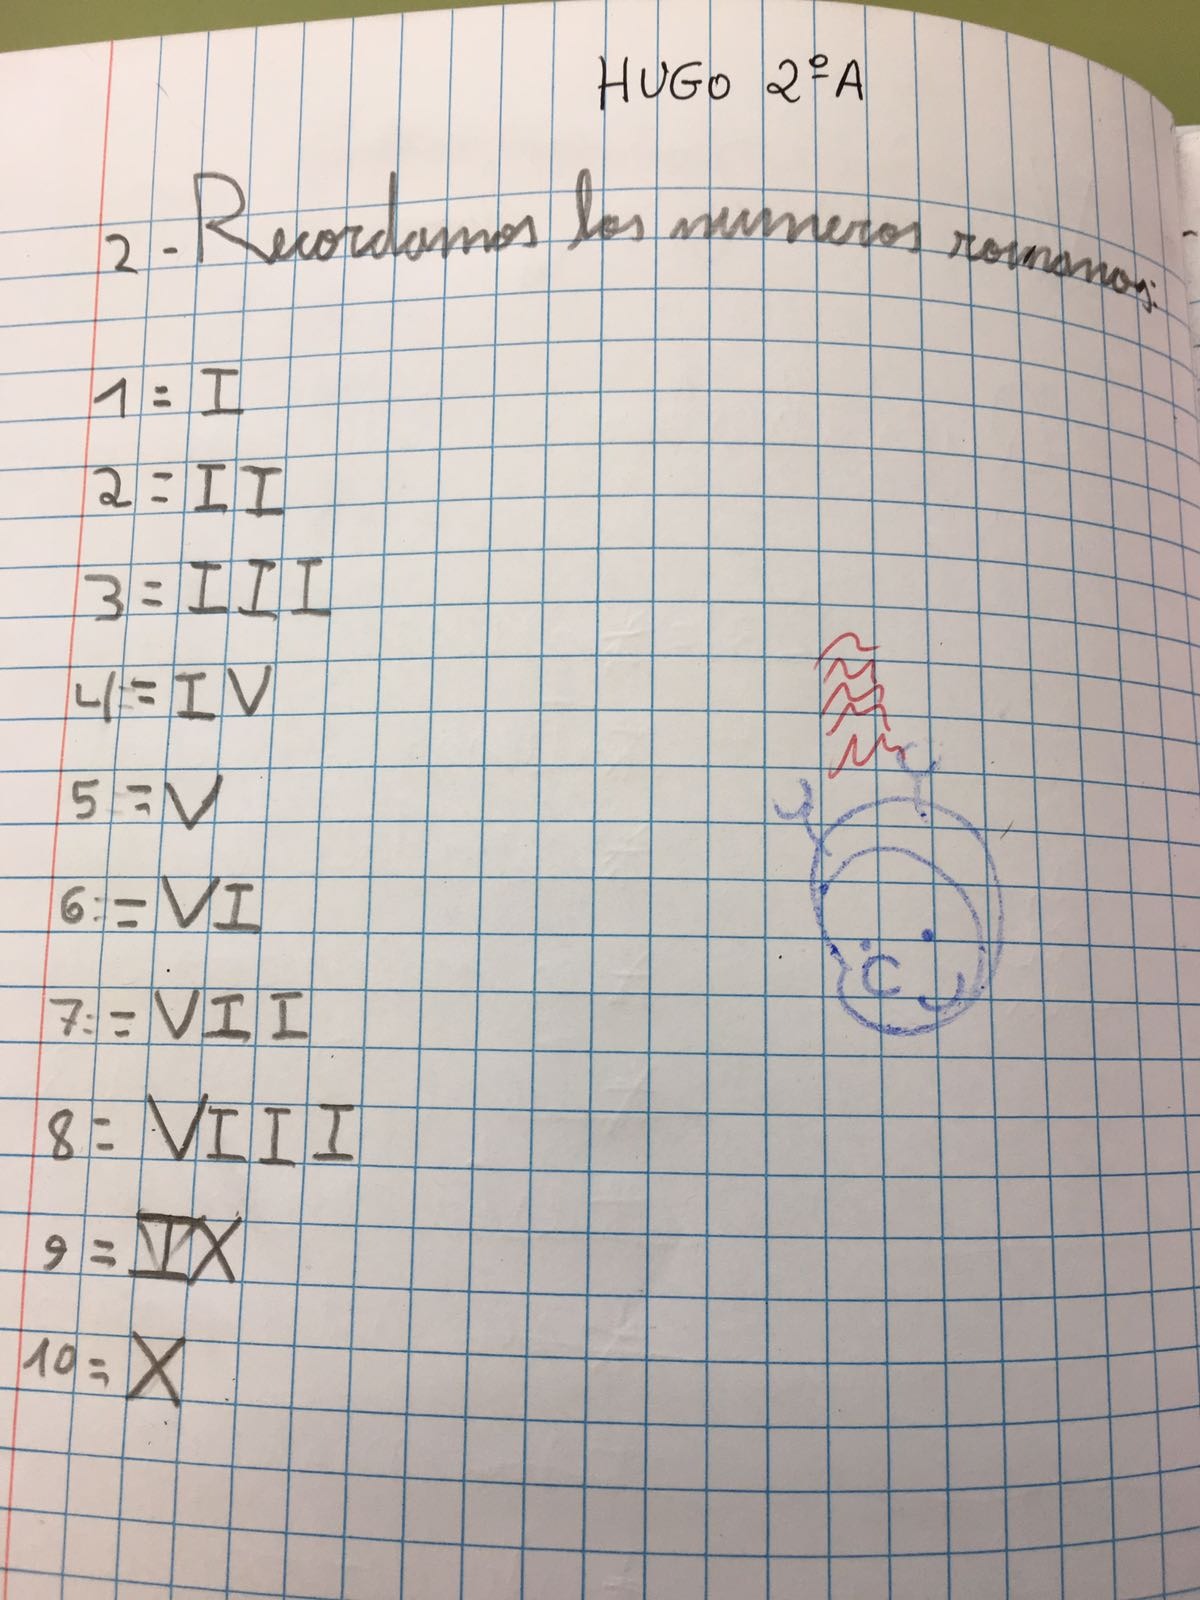 HUGO 2ºA
2- Recordamos los numeros romanos:
1 = I
2 = II
3 = III
4 = IV
5 = V
6 = VI
7 = VII
8 = VIII
9 = IX
10 = X